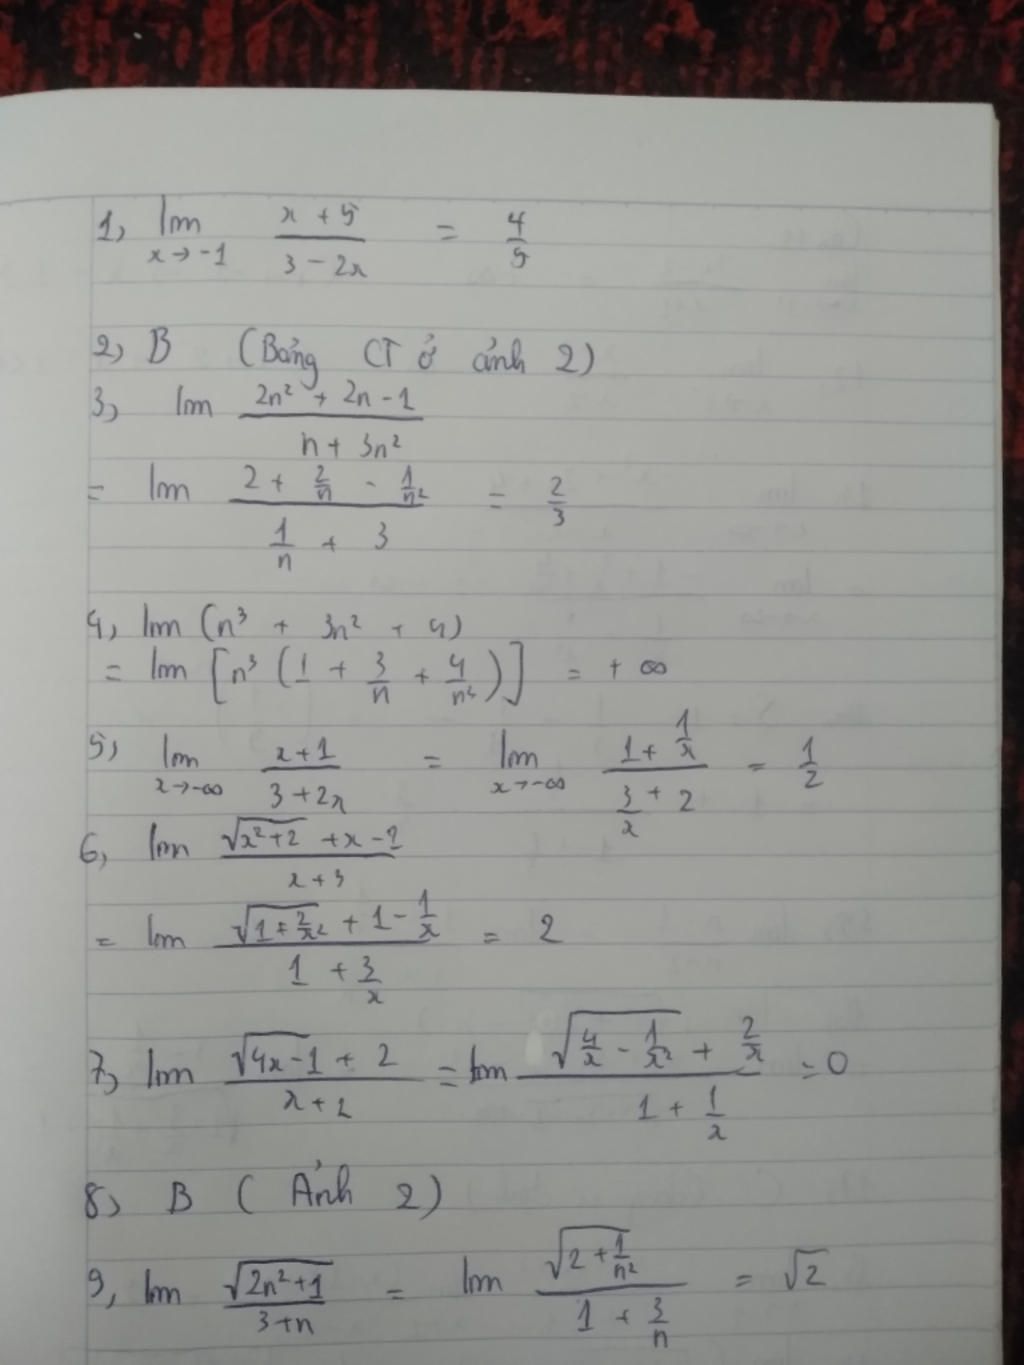 1, lim x→-1 (x + 5)/(3 - 2x) = 4/5
2, B (Bảng CT ở ảnh 2)
3, lim (2n² + 2n - 1)/(n + 3n²)
= lim (2 + 2/n - 1/n²)/(1/n + 3) = 2/3
4, lim (n³ + 3n² + 4)
= lim [n³ (1 + 3/n + 4/n³)] = +∞
5, lim x→-∞ (x+1)/(3+2x) = lim x→-∞ (1 + 1/x)/(3/x + 2) = 1/2
6, lim (√(x²+2) + x - 1)/(x+3)
= lim (√(1 + 2/x²) + 1 - 1/x)/(1 + 3/x) = 2
7, lim (√(4x-1) + 2)/(x+1) = lim (√(4/x - 1/x²) + 2/x)/(1 + 1/x) = 0
8, B (Ảnh 2)
9, lim √(2n²+1)/(3+n) = lim √(2 + 1/n²)/(1 + 3/n) = √2